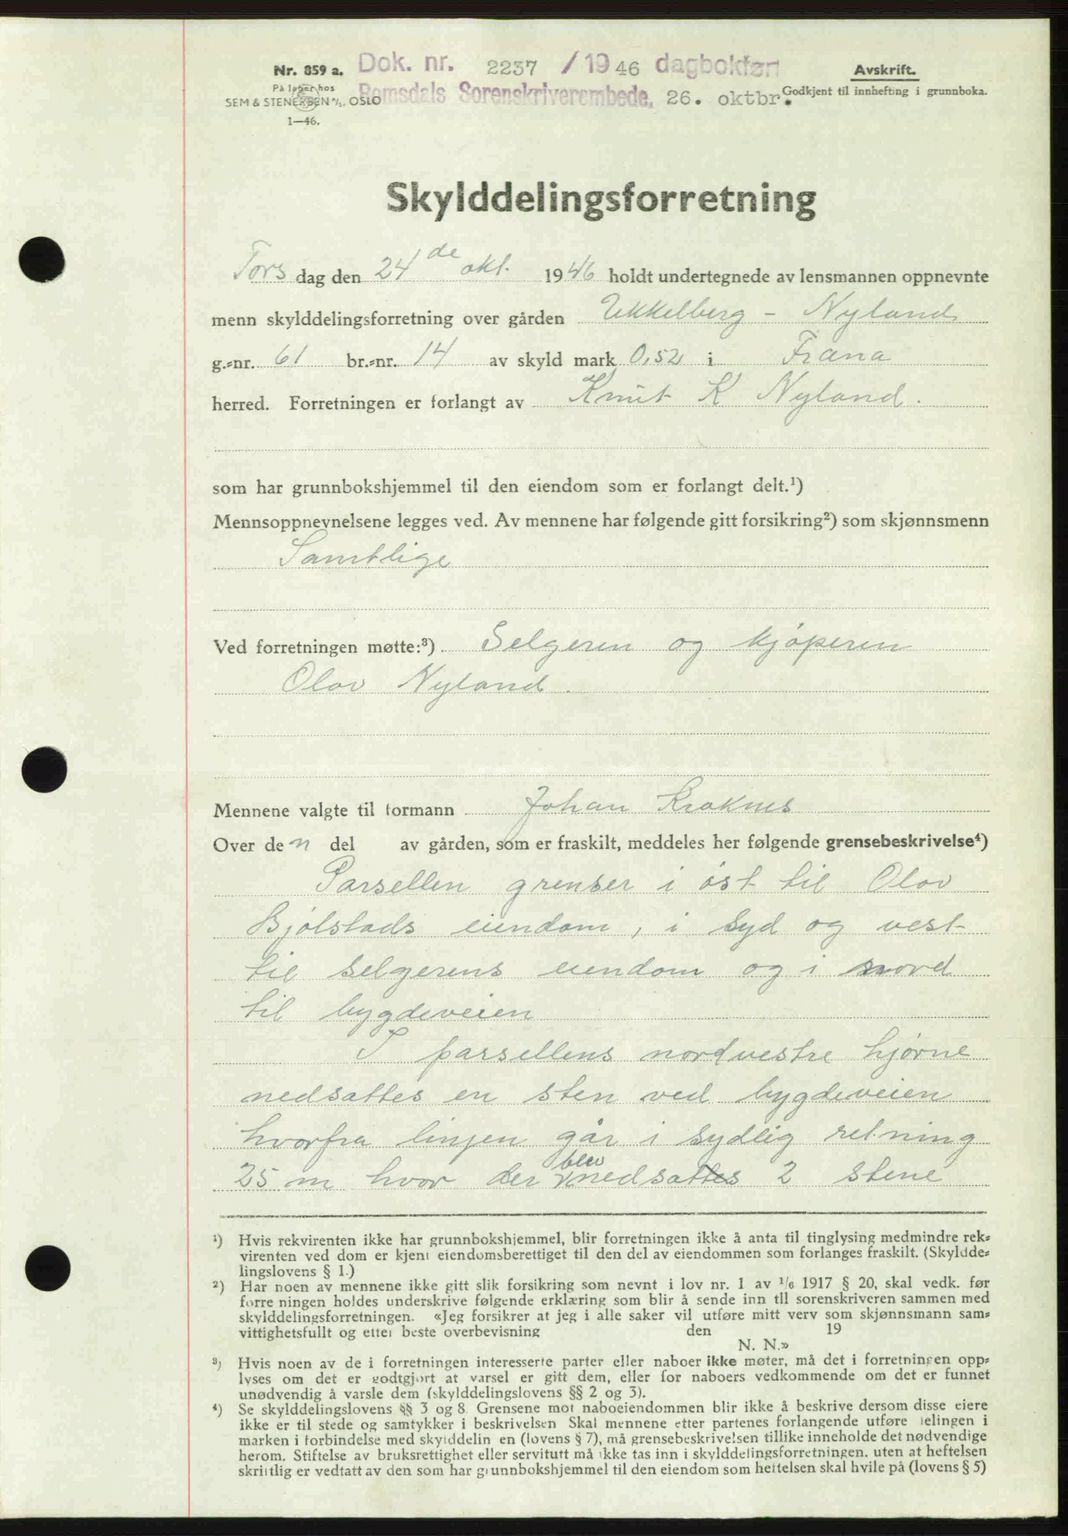 Nr. 859 a.
På lager hos
SEM & STENERSEN A/S. OSLO
1—46.
Dok. nr. 2237 / 1946 dagbokført
Romsdals Sorenskriverembede, 26. oktbr.
Avskrift.
Godkjent til innhefting i grunnboka.
Skylddelingsforretning
Tors dag den 24de okt. 1946 holdt undertegnede av lensmannen oppnevnte
menn skylddelingsforretning over gården Ukkelberg - Nyland
g.-nr. 61 br.-nr. 14 av skyld mark 0,52 i Fræna
herred. Forretningen er forlangt av Knut K Nyland.
som har grunnbokshjemmel til den eiendom som er forlangt delt.¹)
Mennsoppnevnelsene legges ved. Av mennene har følgende gitt forsikring²) som skjønnsmenn
Samtlige
Ved forretningen møtte:³) Selgeren og kjøperen
Olav Nyland.
Mennene valgte til formann Johan Kroknes
Over den del av gården, som er fraskilt, meddeles her følgende grensebeskrivelse⁴)
Parsellen grenser i øst til Olav
Bjølstads eiendom, i syd og vest
til selgerens eiendom og i nord
til bygdeveien
I parsellens nordvestre hjørne
nedsattes en sten ved bygdeveien
hvorfra linjen går i sydlig retning
25 m hvor der blev nedsattes 2 stene
¹) Hvis rekvirenten ikke har grunnbokshjemmel, blir forretningen ikke å anta til tinglysing medmindre rek-
virenten ved dom er kjent eiendomsberettiget til den del av eiendommen som forlanges fraskilt. (Skyldde-
lingslovens § 1.)
²) Har noen av mennene ikke gitt slik forsikring som nevnt i lov nr. 1 av 1/6 1917 § 20, skal vedk. før
forretningen holdes underskrive følgende erklæring som blir å sende inn til sorenskriveren sammen med
skylddelingsforretningen. «Jeg forsikrer at jeg i alle saker vil utføre mitt verv som skjønnsmann sam-
vittighetsfullt og etter beste overbevisning den 19
N. N.»
³) Hvis noen av de i forretningen interesserte parter eller naboer ikke møter, må det i forretningen opp-
lyses om det er godtgjort at varsel er gitt dem, eller for naboers vedkommende om det er funnet
unødvendig å varsle dem (skylddelingslovens §§ 2 og 3).
⁴) Se skylddelingslovens §§ 3 og 8. Grensene mot naboeiendommen blir ikke å beskrive dersom disse eiere
ikke er til stede og samtykker i beskrivelsen Skal mennene etter partenes forlangende utføre delingen i
marken i forbindelse med skylddelingen (lovens § 7), må grensebeskrivelsen tillike inneholde det nødvendige
herom. Stiftelse av bruksrettighet eller servitutt må ikke tas inn i skylddelingsforretningen, uten at heftelsen
skriftlig er vedtatt av den som har grunnbokshjemmel til den eiendom som heftelsen skal hvile på (lovens § 5)